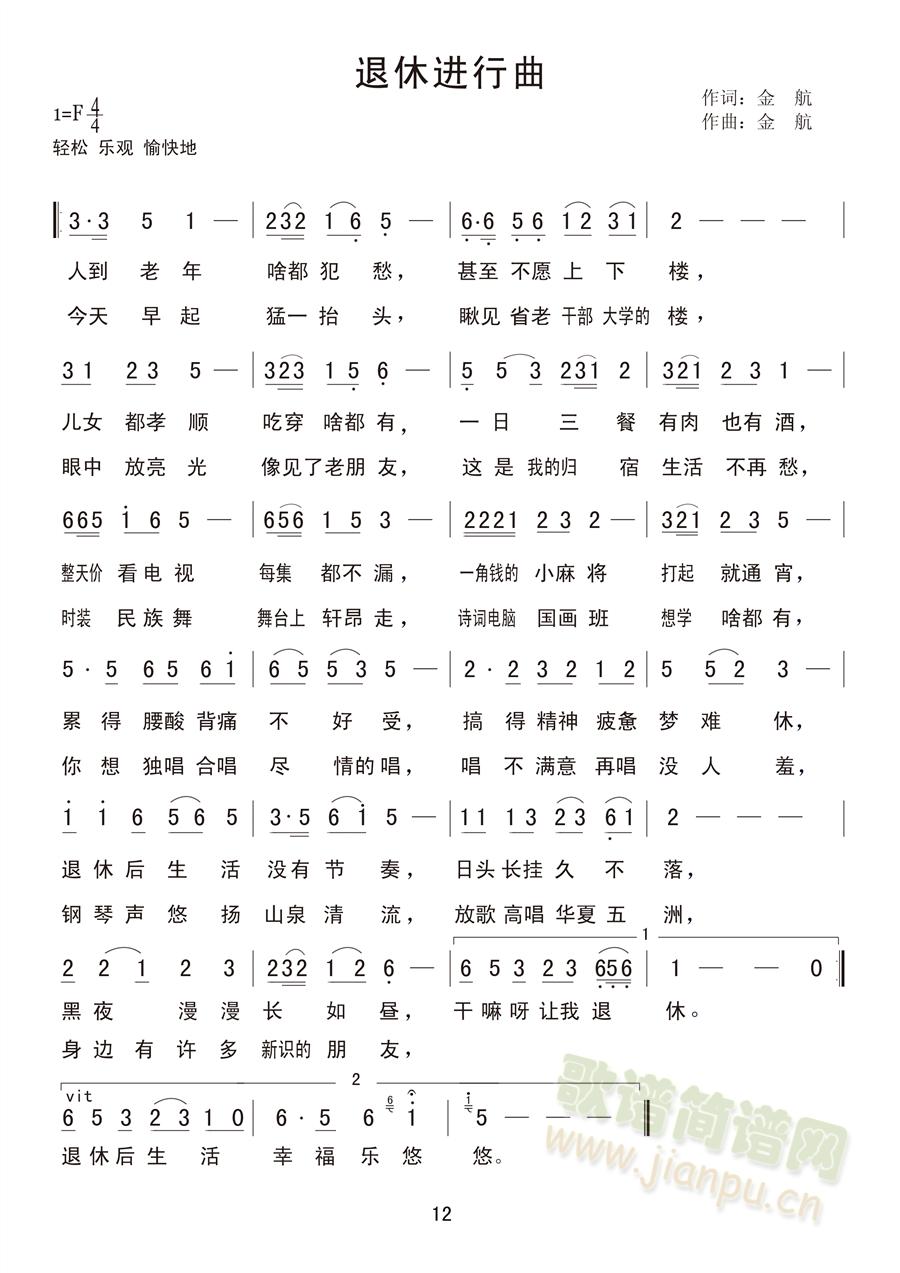 退休进行曲
1=F 4/4
作词：金 航
作曲：金 航
轻松 乐观 愉快地
3·3 5 1 — | 232 1 6 5 — | 6·6 5 6 1 2 3 1 | 2 — — — |
人到 老 年 啥都 犯 愁， 甚至 不愿 上 下 楼，
今天 早 起 猛一 抬 头， 瞅见 省老 干部 大学的 楼，
3 1 2 3 5 — | 323 1 5 6 — | 5 5 3 231 2 | 321 2 3 1 — |
儿女 都孝 顺 吃穿 啥都 有， 一 日 三 餐 有肉 也有 酒，
眼中 放亮 光 像见了老朋 友， 这 是 我的归 宿 生活 不再 愁，
665 1 6 5 — | 656 1 5 3 — | 2221 2 3 2 — | 321 2 3 5 — |
整天价 看电 视 每集 都不 漏， 一角钱的 小麻 将 打起 就通 宵，
时装 民族 舞 舞台上 轩昂 走， 诗词电脑 国画 班 想学 啥都 有，
5· 5 6 5 6 1 | 6 5 5 3 5 — | 2· 2 3 2 1 2 | 5 5 2 3 — |
累 得 腰酸 背痛 不 好 受， 搞 得 精神 疲惫 梦 难 休，
你 想 独唱 合唱 尽 情的 唱， 唱 不 满意 再唱 没 人 羞，
1 1 6 5 6 5 | 3·5 6 1 5 — | 1 1 1 3 2 3 6 1 | 2 — — — |
退 休 后 生 活 没有 节 奏， 日头 长挂 久 不 落，
钢 琴 声 悠 扬 山泉 清 流， 放歌 高唱 华夏 五 洲，
1
2 2 1 2 3 | 232 1 2 6 — | 6 5 3 2 3 656 | 1 — — 0
黑 夜 漫 漫 长 如 昼， 干 嘛 呀 让我 退 休。
身 边 有 许 多 新识的 朋 友，
2
vit
6 5 3 2 3 1 0 | 6· 5 6 6 1 | 1 5 — — —
退 休 后 生 活 幸 福 乐 悠 悠。
歌谱简谱网
www.jianpu.cn
12